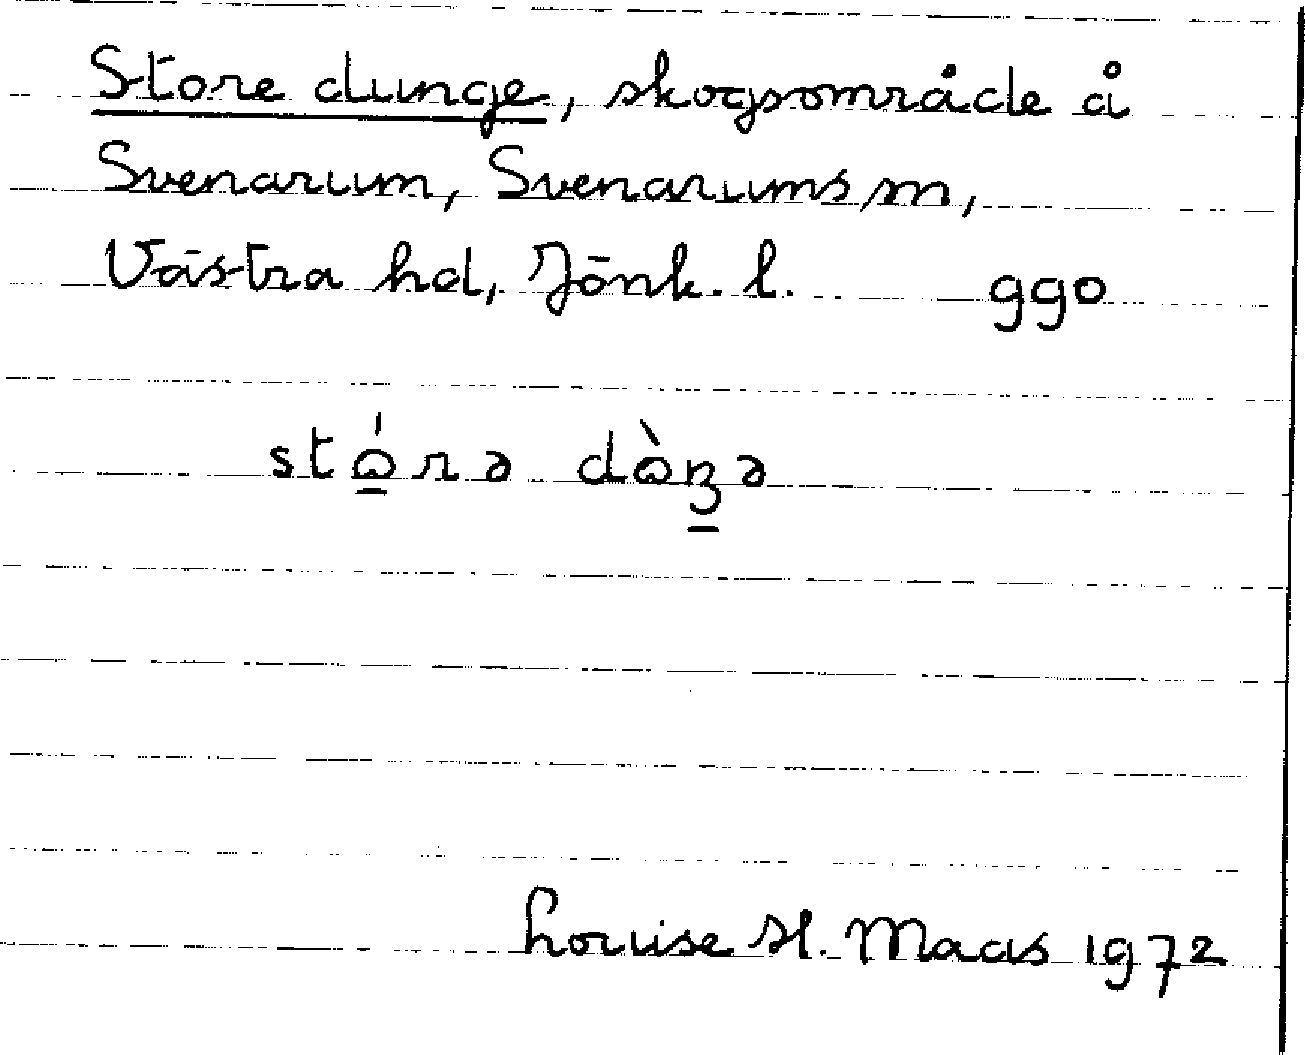 Store dunge, skogsområde å
Svenarum, Svenarums sn,
Västra hd, Jönk. l. ggo
stó̱rə dòŋ̱ə
Louise H. Maas 1972